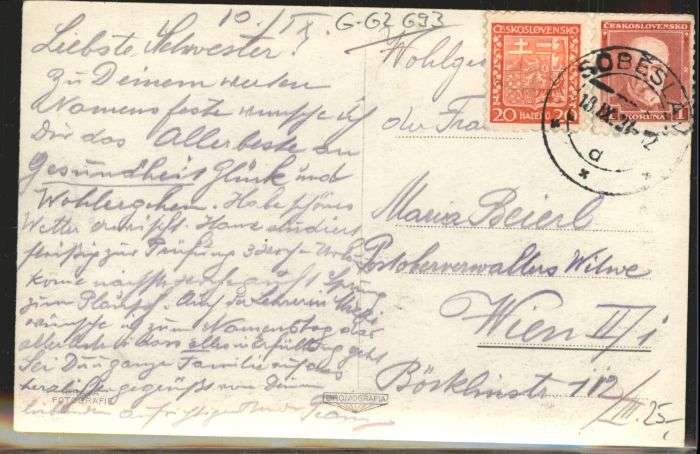 10./IX.
G-G2 693
Liebste Schwester!
Zu Deinem werten
Namensfeste wünsche ich
Dir das Allerbeste an
Gesundheit Glück und
Wohlergehen. Habe schönes
Wetter erwischt. Hans studiert
fleißig zur Prüfung
zum Plausch. Auf
wünsche ich zum Namenstag
alles in Erfüllung geht
Sei Du u. ganze Familie
herzlichst gegrüßt von Deinem
FOTOGRAFIE
BROMOGRAFIA
ČESKOSLOVENSKO
20 HALÉŘŮ 20
ČESKOSLOVENSKO
1 KORUNA
SOBĚSLAV
a
der Frau
Maria Beierl
Postoberverwalters Witwe
Wien II/1
Böcklinstr 112
/III. 25,-